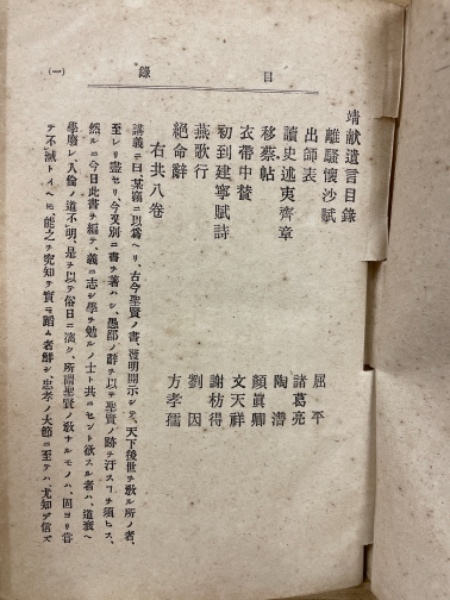 目錄
(一)
靖献遺言目錄
離騷懷沙賦 屈平
出師表 諸葛亮
讀史述夷齊章 陶潛
移蔡帖 顏眞卿
衣帶中贊 文天祥
初到建寧賦詩 謝枋得
燕歌行 劉因
絕命辭 方孝孺
右共八卷
講義ニ曰、某竊ニ以爲ヘリ、古今聖賢ノ書、發明開示シテ、天下後世ヲ敎ル所ノ者、
至レリ盡セリ、今又別ニ書ヲ著ハシ、愚鄙ノ辭ヲ以テ聖賢ノ跡ヲ汙スヿヲ須ヒス、
然ルニ今日此書ヲ編テ、義ニ志シ學ヲ勉ルノ士ト共ニセント欲スル者ハ、道衰ヘ
學廢レ、人倫ノ道不明、是ヲ以テ俗日ニ漓ク、所謂聖賢ノ敎ナルモノハ、固ヨリ嘗
テ不滅トイヘ𪜈、能之ヲ究知ヲ實ニ蹈ム者鮮シ、忠孝ノ大節ニ至テハ、尤知ア信ズ